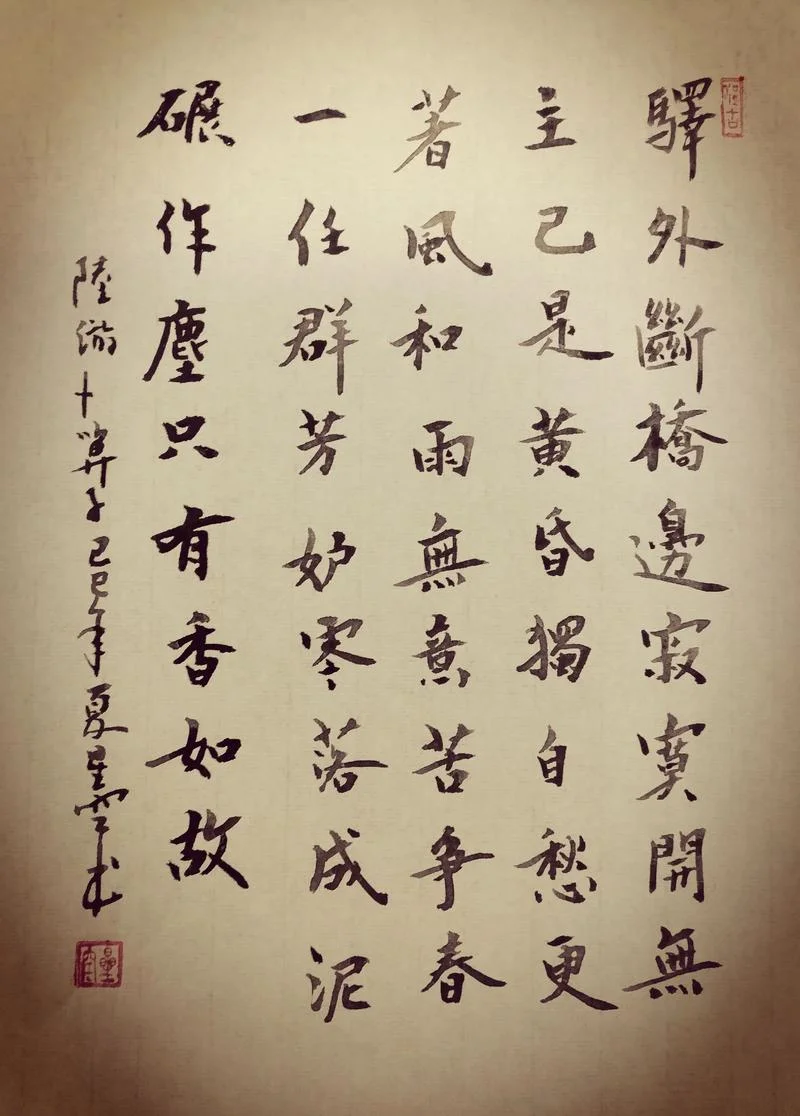 驛外斷橋邊寂寞開無
主已是黃昏獨自愁更
著風和雨無意苦爭春
一任群芳妒零落成泥
碾作塵只有香如故
陸游卜算子己巳年夏星雲